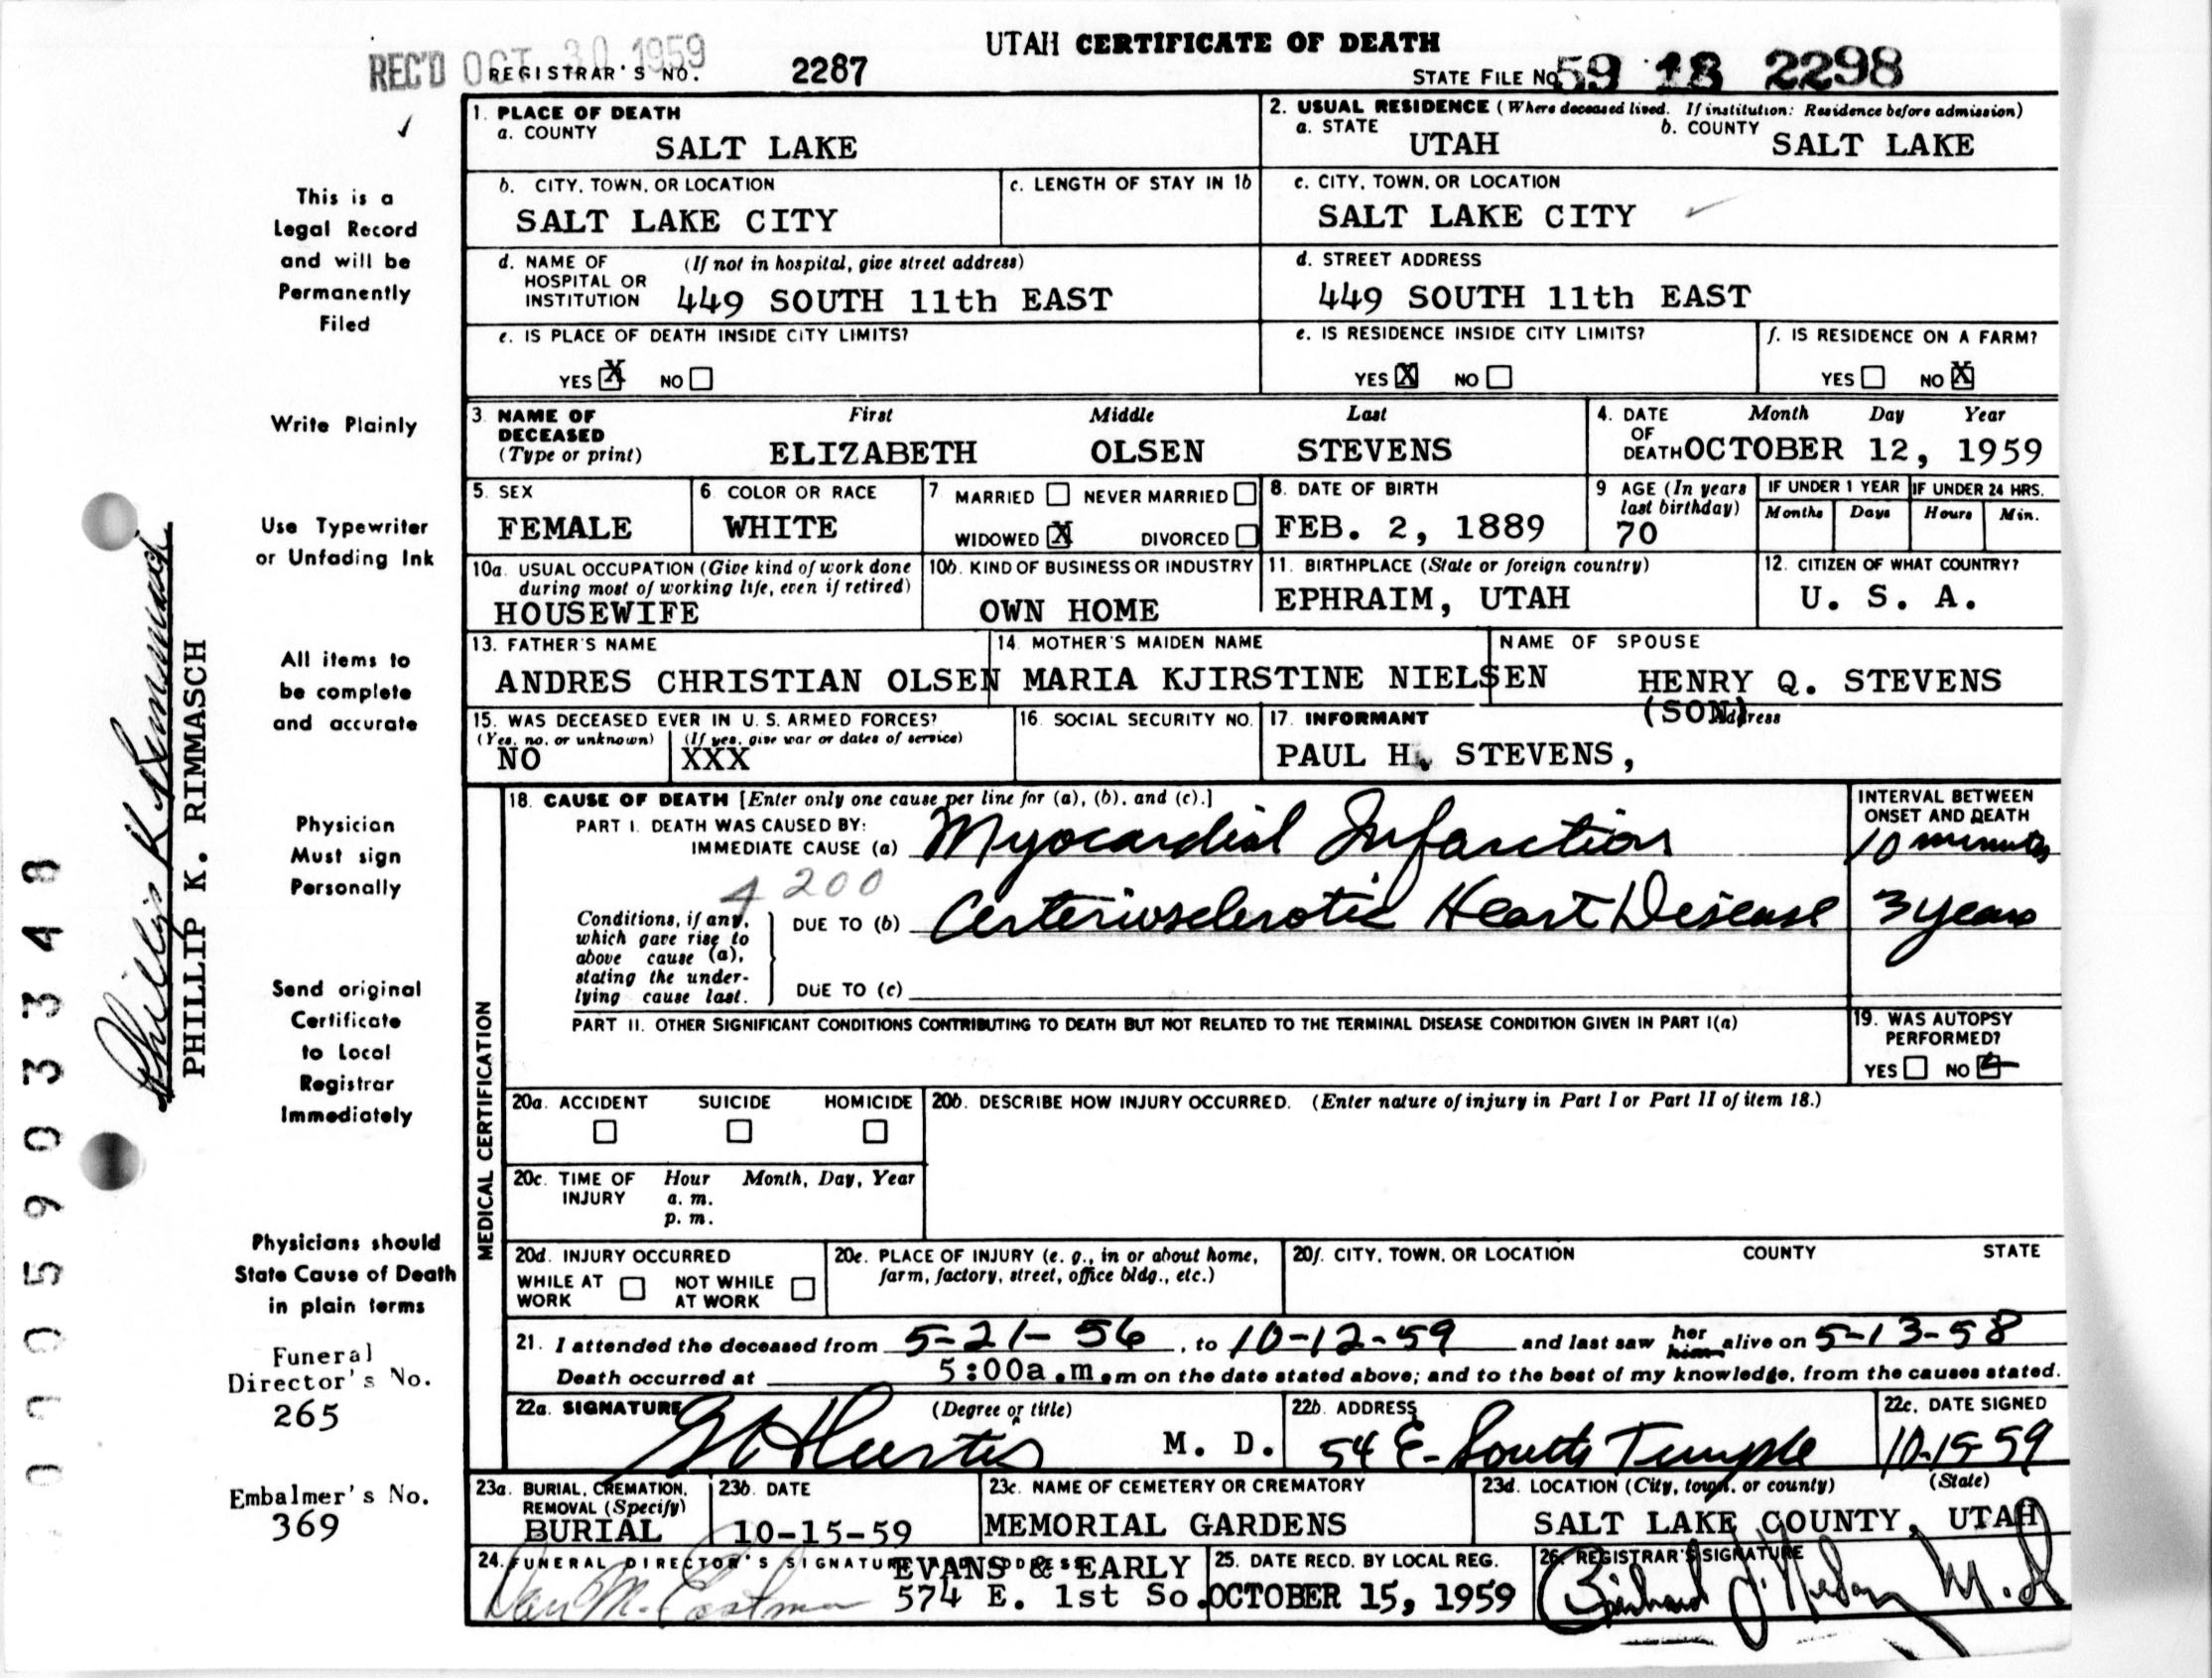 UTAH CERTIFICATE OF DEATH
REC'D OCT 30 1959
REGISTRAR'S NO. 2287
STATE FILE NO. 59 18 2298
1. PLACE OF DEATH
a. COUNTY
SALT LAKE
2. USUAL RESIDENCE (Where deceased lived. If institution: Residence before admission)
a. STATE UTAH b. COUNTY SALT LAKE
b. CITY, TOWN, OR LOCATION
SALT LAKE CITY
c. LENGTH OF STAY IN 1b
c. CITY, TOWN, OR LOCATION
SALT LAKE CITY
d. NAME OF HOSPITAL OR INSTITUTION (If not in hospital, give street address)
449 SOUTH 11th EAST
d. STREET ADDRESS
449 SOUTH 11th EAST
e. IS PLACE OF DEATH INSIDE CITY LIMITS?
YES X NO
e. IS RESIDENCE INSIDE CITY LIMITS?
YES X NO
f. IS RESIDENCE ON A FARM?
YES NO X
3. NAME OF DECEASED (Type or print)
First Middle Last
ELIZABETH OLSEN STEVENS
4. DATE OF DEATH Month Day Year
OCTOBER 12, 1959
5. SEX
FEMALE
6. COLOR OR RACE
WHITE
7. MARRIED NEVER MARRIED
WIDOWED X DIVORCED
8. DATE OF BIRTH
FEB. 2, 1889
9 AGE (In years last birthday)
70
IF UNDER 1 YEAR
Months Days
IF UNDER 24 HRS.
Hours Min.
10a. USUAL OCCUPATION (Give kind of work done during most of working life, even if retired)
HOUSEWIFE
10b. KIND OF BUSINESS OR INDUSTRY
OWN HOME
11. BIRTHPLACE (State or foreign country)
EPHRAIM, UTAH
12. CITIZEN OF WHAT COUNTRY?
U. S. A.
13. FATHER'S NAME
ANDRES CHRISTIAN OLSEN
14. MOTHER'S MAIDEN NAME
MARIA KJIRSTINE NIELSEN
NAME OF SPOUSE
HENRY Q. STEVENS
15. WAS DECEASED EVER IN U. S. ARMED FORCES?
(Yes, no, or unknown) (If yes, give war or dates of service)
NO XXX
16. SOCIAL SECURITY NO.
17. INFORMANT (SON) Address
PAUL H. STEVENS,
MEDICAL CERTIFICATION
18. CAUSE OF DEATH [Enter only one cause per line for (a), (b), and (c).]
PART I. DEATH WAS CAUSED BY:
IMMEDIATE CAUSE (a) Myocardial Infarction
INTERVAL BETWEEN ONSET AND DEATH
10 minutes
4200
Conditions, if any, which gave rise to above cause (a), stating the underlying cause last.
DUE TO (b) Arteriosclerotic Heart Disease 3 years
DUE TO (c)
PART II. OTHER SIGNIFICANT CONDITIONS CONTRIBUTING TO DEATH BUT NOT RELATED TO THE TERMINAL DISEASE CONDITION GIVEN IN PART I(a)
19. WAS AUTOPSY PERFORMED?
YES NO
20a. ACCIDENT SUICIDE HOMICIDE
20b. DESCRIBE HOW INJURY OCCURRED. (Enter nature of injury in Part I or Part II of item 18.)
20c. TIME OF INJURY Hour Month, Day, Year
a. m.
p. m.
20d. INJURY OCCURRED
WHILE AT WORK NOT WHILE AT WORK
20e. PLACE OF INJURY (e. g., in or about home, farm, factory, street, office bldg., etc.)
20f. CITY, TOWN, OR LOCATION COUNTY STATE
21. I attended the deceased from 5-21-56, to 10-12-59 and last saw her him alive on 5-13-58
Death occurred at 5:00a.m.m on the date stated above; and to the best of my knowledge, from the causes stated.
22a. SIGNATURE (Degree or title)
M. D.
22b. ADDRESS
54 E. South Temple
22c. DATE SIGNED
10-15-59
23a. BURIAL, CREMATION, REMOVAL (Specify)
BURIAL
23b. DATE
10-15-59
23c. NAME OF CEMETERY OR CREMATORY
MEMORIAL GARDENS
23d. LOCATION (City, town, or county) (State)
SALT LAKE COUNTY, UTAH
24. FUNERAL DIRECTOR'S SIGNATURE
EVANS & EARLY
574 E. 1st So.
25. DATE RECD. BY LOCAL REG.
OCTOBER 15, 1959
26. REGISTRAR'S SIGNATURE
This is a
Legal Record
and will be
Permanently
Filed
Write Plainly
Use Typewriter
or Unfading Ink
All items to
be complete
and accurate
Physician
Must sign
Personally
Send original
Certificate
to Local
Registrar
Immediately
Physicians should
State Cause of Death
in plain terms
Funeral
Director's No.
265
Embalmer's No.
369
Phillip K Rimmasch
PHILLIP K. RIMMASCH